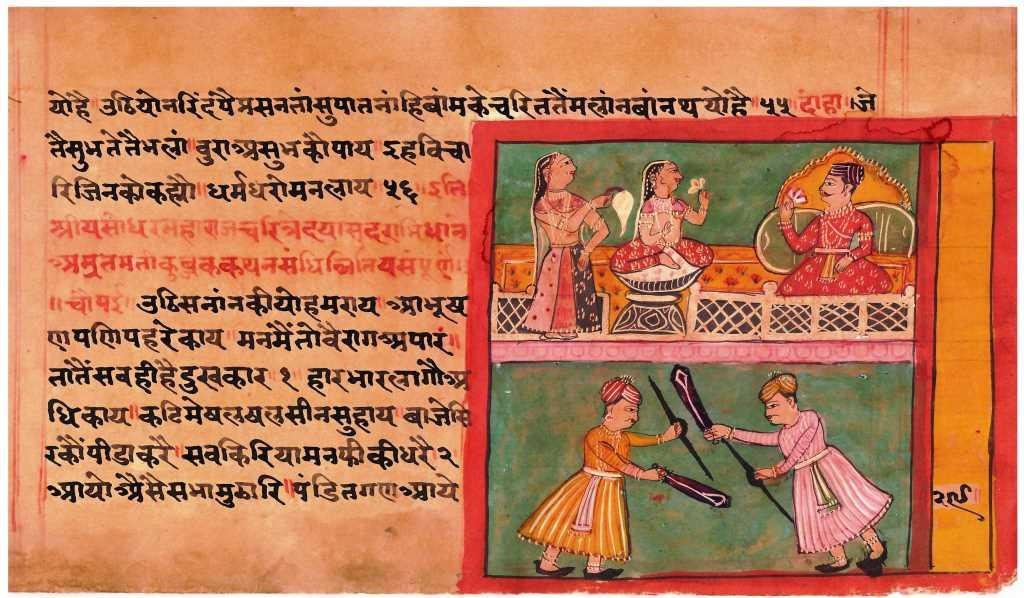 यौंहै उठियोनरिंदपैप्रसनतांसुपातनांहिबांमकेचरिततैंमलांनबांनथयौंहै ५५ दोहा जे
तैसुभतेतैभलां॥ बुराअसुभकौपाय ऽहविचा
रिजिनकौकह्यौ॥ धर्मधरोमनलाय ५६ ऽति
श्रीयसोधरमहाराजचरित्रे
कथनसंधि
॥चौपई॥ उठिसनांनकीयोहमराय आभूष
णपणिपहरेकाय मनमैंतोवैरागअपार॥
तातैंसबहीहैदुखकार १ हारभारलागौअ
धिकाय॥ कटिमेषलषलसीनसुहाय बाजेसि
रकौंपीडाकरै॥ सबकिरियामनफीकीधरै २
आयोअैसैसभामुठारि॥ पंडितगणआये